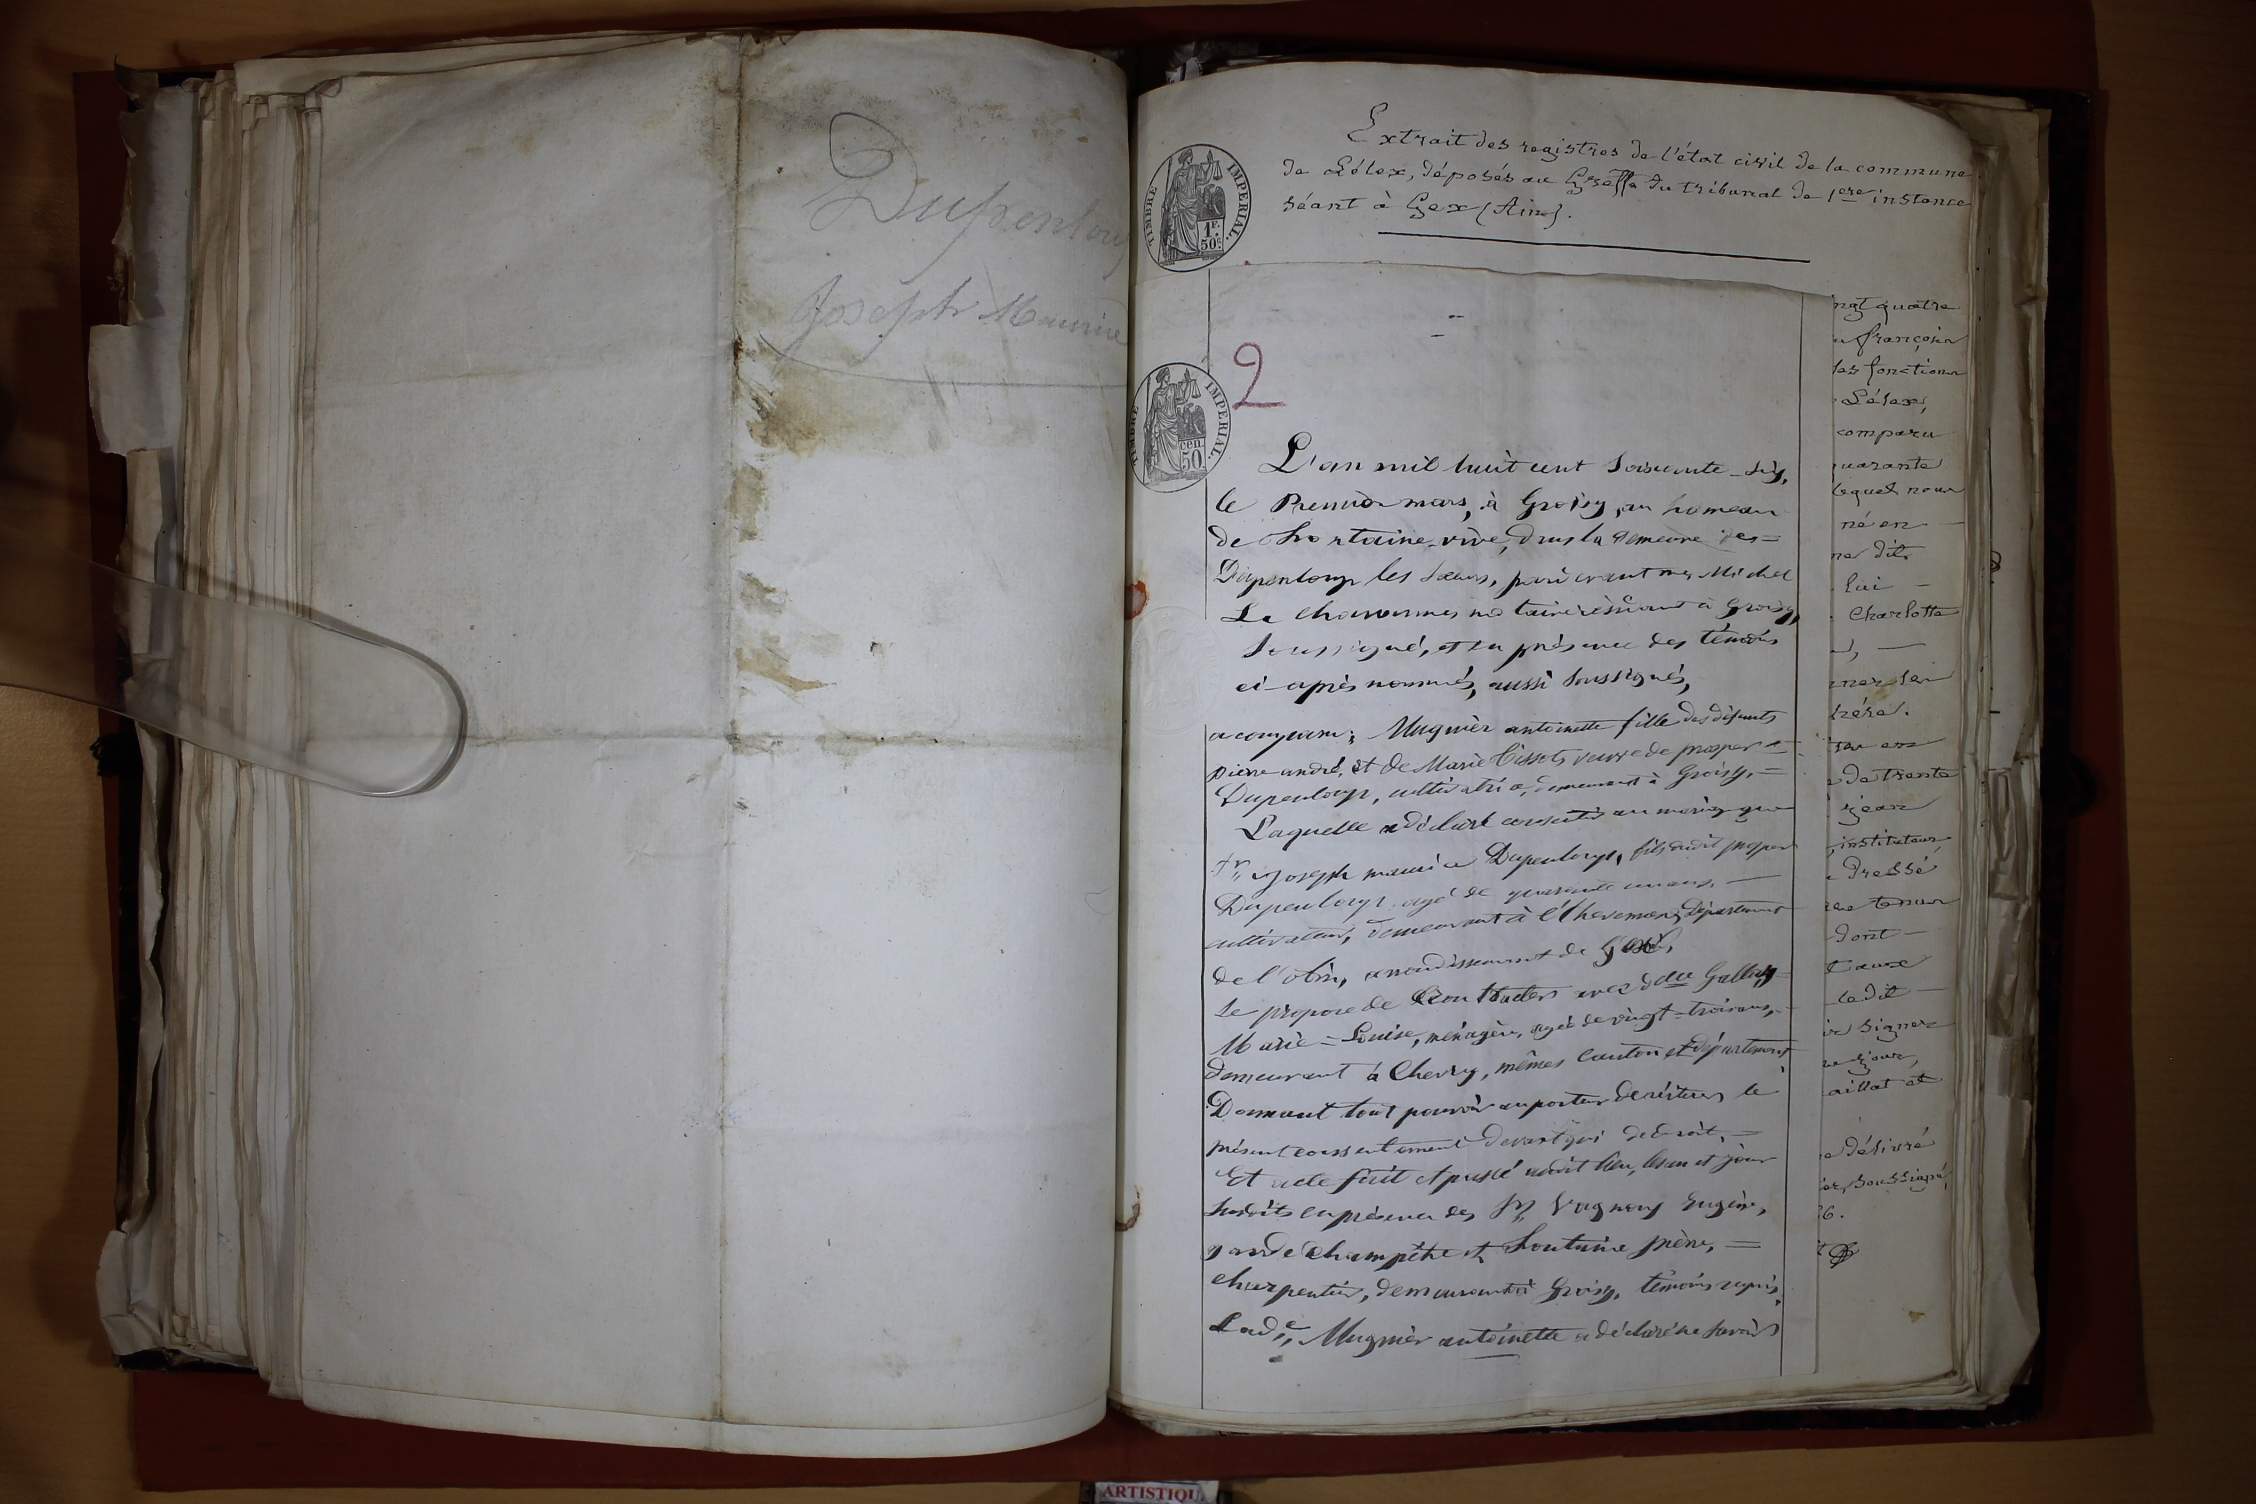 Dupenloup
Joseph Maurice
Extrait des registres de l'état civil de la commune
de Lélex, déposés au Greffe du tribunal de 1ere instance
séant à Gex (Ain).
TIMBRE IMPERIAL.
1F.
50c.
2
TIMBRE IMPERIAL.
cen.
50
L'an mil huit cent soixante-six,
le Premier mars, à Groisy, au hameau
de Fontaine-vive, dans la demeure des
Dupenloup les sœurs, par devant me Michel
La Chavannes notaire résidant à Groisy,
soussigné, et en présence des témoins
ci-après nommés, aussi soussignés,
a comparu; Mugnier antoinette fille des défunts
pierre andré, et de Marie Tissot, veuve de prosper
Dupenloup, cultivatrice, demeurant à Groisy.
Laquelle a déclaré consentir au mariage que
Sr. Joseph maurice Dupenloup, fils dudit prosper
Dupenloup, agé de quarante un ans,
cultivateur, demeurant à département
de l'Ain, arrondissement de Gex,
se propose de Contracter avec dlle Gallay
Marie-Louise, ménagère, agée de vingt-trois ans,
demeurant à Chevry, mêmes canton et département
Donnant tout pouvoir au porteur de réitérer le
présent consentement devant qui de droit,
Et acte fait et passé audit lieu, les an et jour
susdits en présence des Vagnoux Eugène,
garde champêtre et Fontaine pierre,
charpentier, demeurant à Groisy, témoins requis,
Lade. Mugnier antoinette a déclaré ne savoir
ngt quatre
françois
les fonctions
Lélex,
comparu
uarante
lequel nous
né en
ne dit
lui
Charlotte
ner
de trente
jean
instituteur
dressé
tenur
dont
ledit
signer
jour,
aillat et
délivré
soussigné,
6.
ARTISTIQU